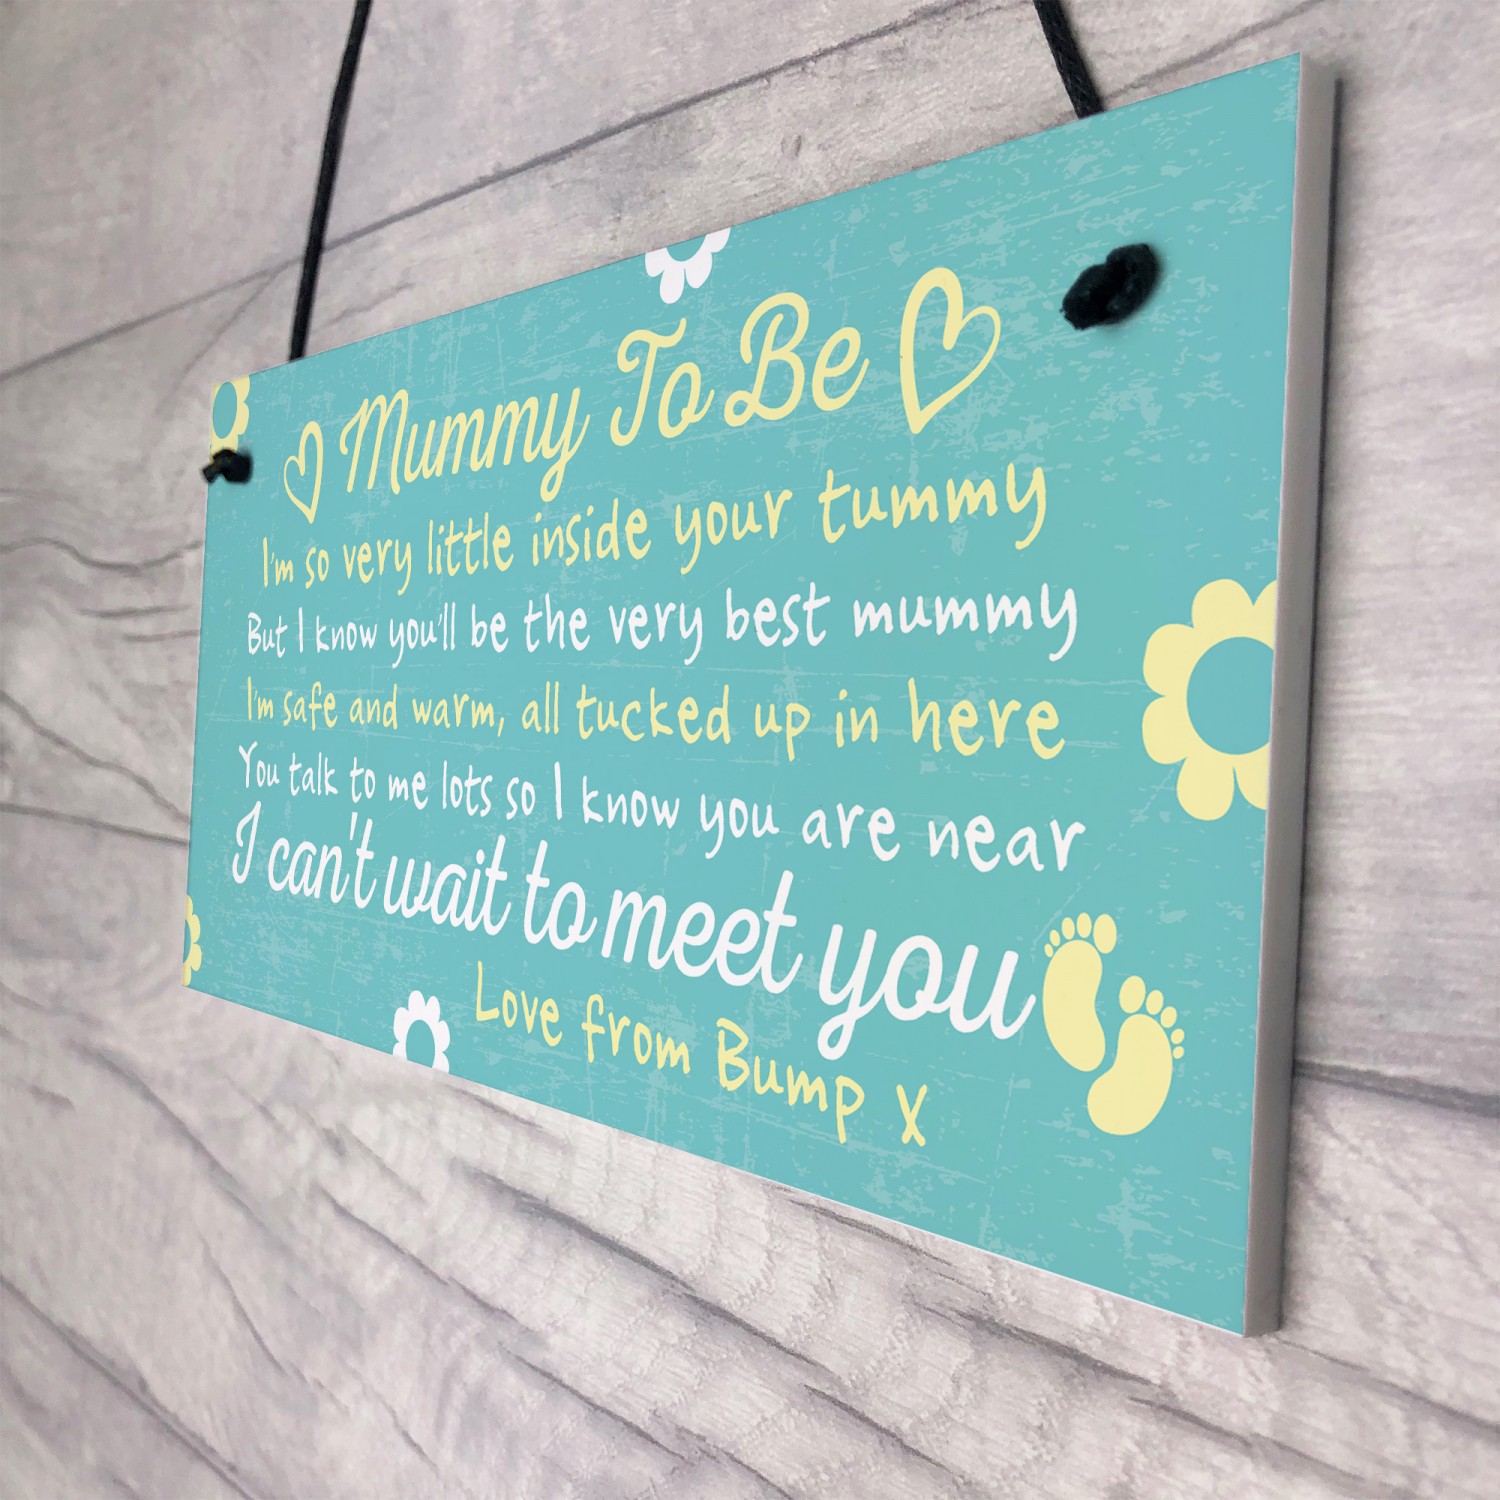 Mummy To Be
I'm so very little inside your tummy
But I know you'll be the very best mummy
I'm safe and warm, all tucked up in here
You talk to me lots so I know you are near
I can't wait to meet you
Love from Bump X